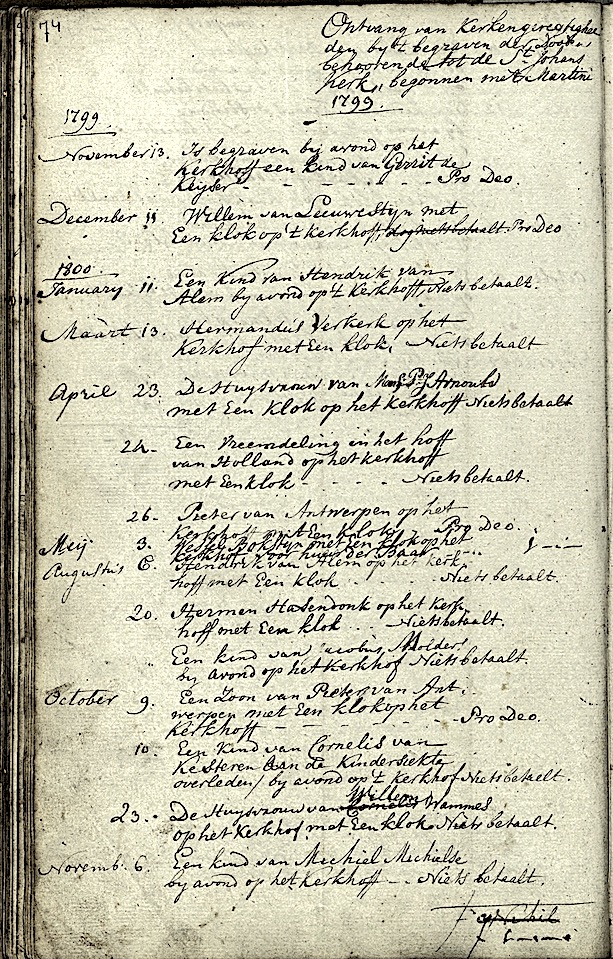 74
Ontvang van Kerkengeregtighe
den by 't begraven der Doode,
behoorende tot de St. Johans
kerk, begonnen met Martini
1799.
1799
November 13. Is begraven by avond op het
Kerkhoff een kind van Gerrit de
Keyser - - - - - - Pro Deo.
December 11 Willem van Leeuwestyn met
Een klok op 't kerkhoff, dog niets betaalt. Pro Deo
1800.
January 11. Een Kind van Hendrik van
Alem by avond op 't Kerkhoff Niets betaalt.
Maart 13. Hermanus Verkerk op het
Kerkhof met Een klok, Niets betaalt
April 23. De Huysvrouw van P. J. Arnouts
met Een klok op het Kerkhoff Niets betaalt
24. Een Vreemdeling in het hoff
van Holland op het kerkhoff
met Een klok - - - - Niets betaalt.
26. Pieter van Antwerpen op het
Kerkhoff met Een klok - Pro Deo.
Meij 3. Bokstyn met Een klok op het
kerkhof voor huur der Baar - - - 1 - -
Augustus 6. Hendrik van Alem op het kerk
hoff met Een klok . . . Niets betaalt.
20. Hermen Hasendonk op het Kerk
hoff met Een klok . . Niets betaalt.
Een kind van Jacobus Molders
by avond op het Kerkhof Niets betaalt.
October 9. Een Zoon van Pieter van Ant,
werpen met Een klok op het
Kerkhoff - - - - - Pro Deo.
10. Een Kind van Cornelis van
Kesteren aan de Kindersiekte
overleden/ by avond op 't kerkhof Niets betaelt.
Willem
23. De Huysvrouw van Cornelis Wammes
op het Kerkhof met Een klok Niets betaalt.
Novemb. 6. Een kind van Michiel Michielse
by avond op het Kerkhoff - - Niets betaalt.
Nihil
f 1 - -